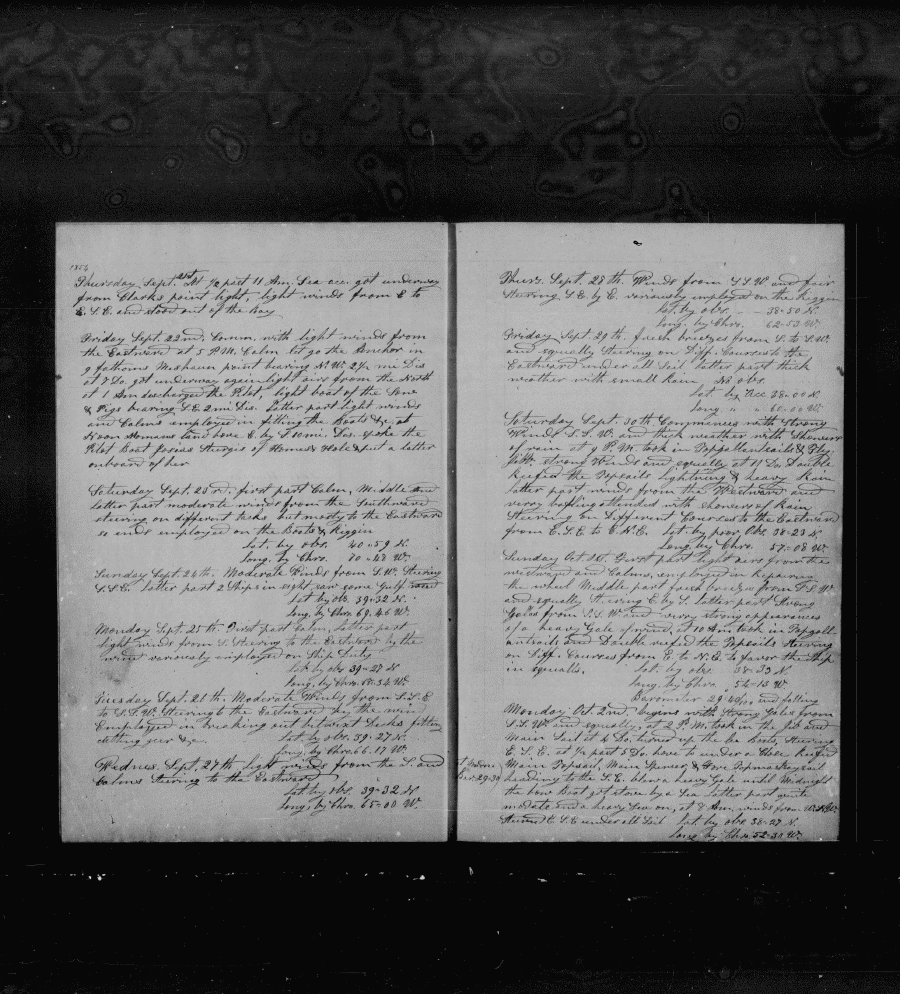 1854
Thursday Sept. 21st At ½ past 11 Am. Sea acc. got underway
from Clarks point light, light winds from E to
E.S.E. and stood out of the bay
Friday Sept. 22nd. Comm. with light winds from
the Eastward at 5 P.M. Calm let go the Anchor in
9 fathoms point bearing N.W. 2½ mi Dis
at 7 Do. got underway again light airs from the North
at 1 Am discharged the Pilot, light boat of the Sow
& Pigs bearing S.E. 2 mi Dis. latter part light winds
and Calms employed in fitting the Boats &c. at
Noon Nomans Land bore E. by S. 10 mi. Dis. spoke the
Pilot Boat Josias Sturgis of Homes Hole & put a letter
onboard of her
Saturday Sept. 23rd. first part Calm, Middle and
latter part moderate winds from the Southward
steering on different tacks but mostly to the Eastward
so ends employed on the Boats & Riggin
Lat. by obs. 40-59 N.
Long. by Chro. 70-48 W.
Sunday Sept. 24th. Moderate Winds from S.W. Steering
S.S.E. latter part 2 Ships in sight saw some Gulf weed
Lat by obs. 39-32 N.
long, by Chro 69.46 W.
Monday Sept. 25th First part Calm, latter part
light winds from S. Steering to the Eastward by the
wind variously employed on Ship Duty
Lat by obs 39-27 N
long, by Chro. 68.34 W.
Tuesday Sept. 26th Moderate Winds from S.S.E
to S.S.W. Steering to the Eastward by the wind
Employed in breaking out betwixt Decks fitting
cutting gear &c.
Lat by obs. 39-27 N.
long, by Chro. 66.17 W.
Wednes. Sept. 27th light winds from the S. and
Calms Steering to the Eastward
Lat by obs. 39-32 N
long, by Chro. 65-00 W.
Thurs. Sept. 28th. Winds from S.S.W and fair
Steering S.E. by E. variously employed on the Riggin
Lat. by obs. 38-50 N.
long. by Chro. 62-53 W.
Friday Sept. 29th. fresh breezes from S. to S.W.
and squally Steering on Diff. Courses to the
Eastward under all Sail latter part thick
weather with small Rain No obs.
Lat. by Acc 38-00 N.
long " " 60-00 W.
Saturday Sept. 30th. Commences with Strong
Winds S.S.W. and thick weather with Showers
of rain at 9 P.M. took in Topgallantsails & Fly
Jibb. strong Winds and squally at 11 Do. Double
Reefed the Topsails lightning & heavy Rain
latter part winds from the Westward and
very baffling attended with showers of Rain
Steering on Different Courses to the Eastward
from E.S.E. to E.N.E. Lat by poor Obs. 38-23 N.
Long by Chro. 57-08 W.
Sunday Oct 1st. First part light airs from the
westward and Calms, employed in repairing
the wheel Middle part fresh breezes from S.S.W.
and squally Steering E. by S. latter part Strong
Gales from S.S.W and very strong appearances
of a heavy Gale of wind, at 10 Am. took in Topgall-
antsails and Double reefed the Topsails Steering
on Diff. Courses from E. to N.E. to favor the ship
in squalls.
Lat. by obs. 38-33 N.
long. by Chro. 54-13 W.
Barometer 29.40 and falling
Monday Oct. 2nd begins with Strong Gales from
S.S.W. and squally, at 2 P.M. took in the Jib and
Main Sail at 4 Do. turned up the bow boats, Steering
E.S.E. at ½ past 5 Do. hove to under a Close Reefed
Main Topsail, Main Spencer & Fore Topmast Staysail
heading to the S.E. blows a heavy Gale until Midnight
the bow Boat got stove by a Sea latter part quite
moderate and a heavy Sea on, at 8 Am. winds from W.N.W.
Steering E.S.E under all Sail Lat by obs 38-27 N.
long by Chro. 52-30 W.
29.30